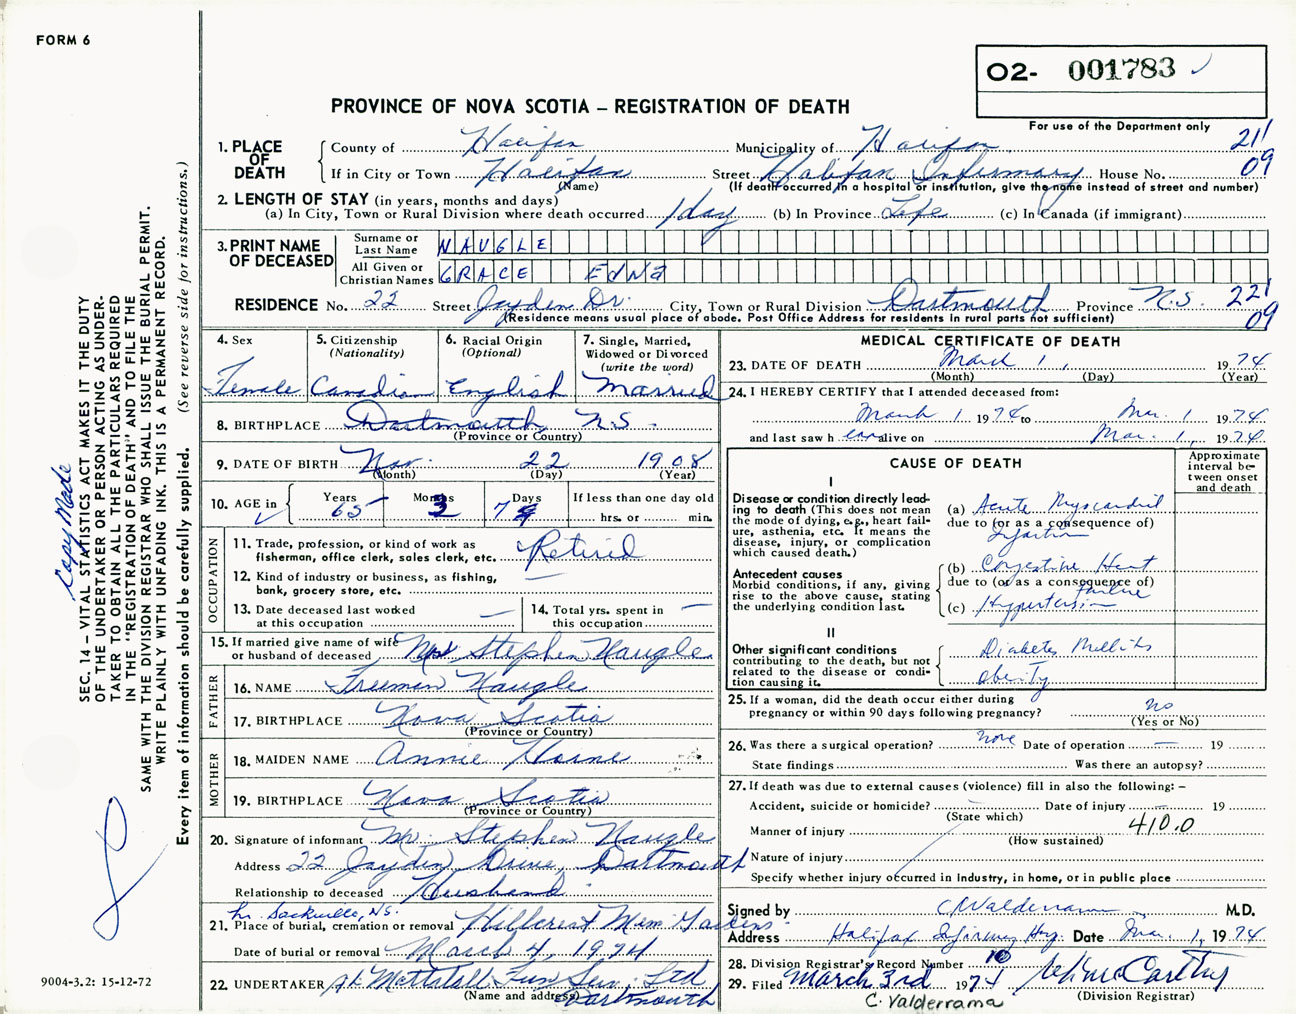 FORM 6
02- 001783
PROVINCE OF NOVA SCOTIA – REGISTRATION OF DEATH
For use of the Department only
1. PLACE OF DEATH
County of Halifax Municipality of Halifax 21/09
If in City or Town Halifax Street Halifax Infirmary House No.
(Name) (If death occurred in a hospital or institution, give the name instead of street and number)
2. LENGTH OF STAY (in years, months and days)
(a) In City, Town or Rural Division where death occurred 1 day (b) In Province Life (c) In Canada (if immigrant)
3. PRINT NAME OF DECEASED
Surname or Last Name NAUGLE
All Given or Christian Names GRACE EDNA
RESIDENCE No. 22 Street Jayden Dr. City, Town or Rural Division Dartmouth Province N.S. 22/09
(Residence means usual place of abode. Post Office Address for residents in rural parts not sufficient)
4. Sex
Female
5. Citizenship
(Nationality)
Canadian
6. Racial Origin
(Optional)
English
7. Single, Married,
Widowed or Divorced
(write the word)
Married
8. BIRTHPLACE Dartmouth N.S.
(Province or Country)
9. DATE OF BIRTH Nov. 22 1908
(Month) (Day) (Year)
10. AGE in
Years Months Days If less than one day old
65 3 7 hrs. or min.
OCCUPATION
11. Trade, profession, or kind of work as
fisherman, office clerk, sales clerk, etc. Retired
12. Kind of industry or business, as fishing,
bank, grocery store, etc. —
13. Date deceased last worked
at this occupation —
14. Total yrs. spent in
this occupation —
15. If married give name of wife
or husband of deceased Mr Stephen Naugle
FATHER
16. NAME Freeman Naugle
17. BIRTHPLACE Nova Scotia
(Province or Country)
MOTHER
18. MAIDEN NAME Annie Horne
19. BIRTHPLACE Nova Scotia
(Province or Country)
20. Signature of informant Mr. Stephen Naugle
Address 22 Jayden Drive, Dartmouth
Relationship to deceased Husband
Lr. Sackville, N.S.
21. Place of burial, cremation or removal Hillcrest Mem. Gardens
Date of burial or removal March 4, 1974
22. UNDERTAKER Mattatall Fun Ser. Ltd
(Name and address) Dartmouth
MEDICAL CERTIFICATE OF DEATH
23. DATE OF DEATH March 1, 1974
(Month) (Day) (Year)
24. I HEREBY CERTIFY that I attended deceased from:
March 1 1974 to Mar. 1 1974
and last saw h er alive on Mar. 1, 1974
CAUSE OF DEATH
Approximate
interval be-
tween onset
and death
I
Disease or condition directly lead-
ing to death (This does not mean
the mode of dying, e.g., heart fail-
ure, asthenia, etc. It means the
disease, injury, or complication
which caused death.)
(a) Acute Myocardial
due to (or as a consequence of)
Infarction
Antecedent causes
Morbid conditions, if any, giving
rise to the above cause, stating
the underlying condition last.
(b) Congestive Heart
due to (or as a consequence of)
Failure
(c) Hypertension
II
Other significant conditions
contributing to the death, but not
related to the disease or condi-
tion causing it.
Diabetes Mellitus
obesity
25. If a woman, did the death occur either during
pregnancy or within 90 days following pregnancy? no
(Yes or No)
26. Was there a surgical operation? none Date of operation — 19
State findings Was there an autopsy?
27. If death was due to external causes (violence) fill in also the following: –
Accident, suicide or homicide? — Date of injury — 19
(State which)
Manner of injury 410.0
(How sustained)
Nature of injury
Specify whether injury occurred in Industry, in home, or in public place
Signed by C Valderrama M.D.
Address Halifax Infirmary Hosp. Date Mar. 1, 1974
28. Division Registrar's Record Number 10
29. Filed March 3rd 1974
(Division Registrar)
C. Valderrama
Copy Made
SEC. 14 – VITAL STATISTICS ACT MAKES IT THE DUTY
OF THE UNDERTAKER OR PERSON ACTING AS UNDER-
TAKER TO OBTAIN ALL THE PARTICULARS REQUIRED
IN THE "REGISTRATION OF DEATH" AND TO FILE THE
SAME WITH THE DIVISION REGISTRAR WHO SHALL ISSUE THE BURIAL PERMIT.
WRITE PLAINLY WITH UNFADING INK. THIS IS A PERMANENT RECORD.
Every item of information should be carefully supplied. (See reverse side for instructions.)
9004-3.2: 15-12-72